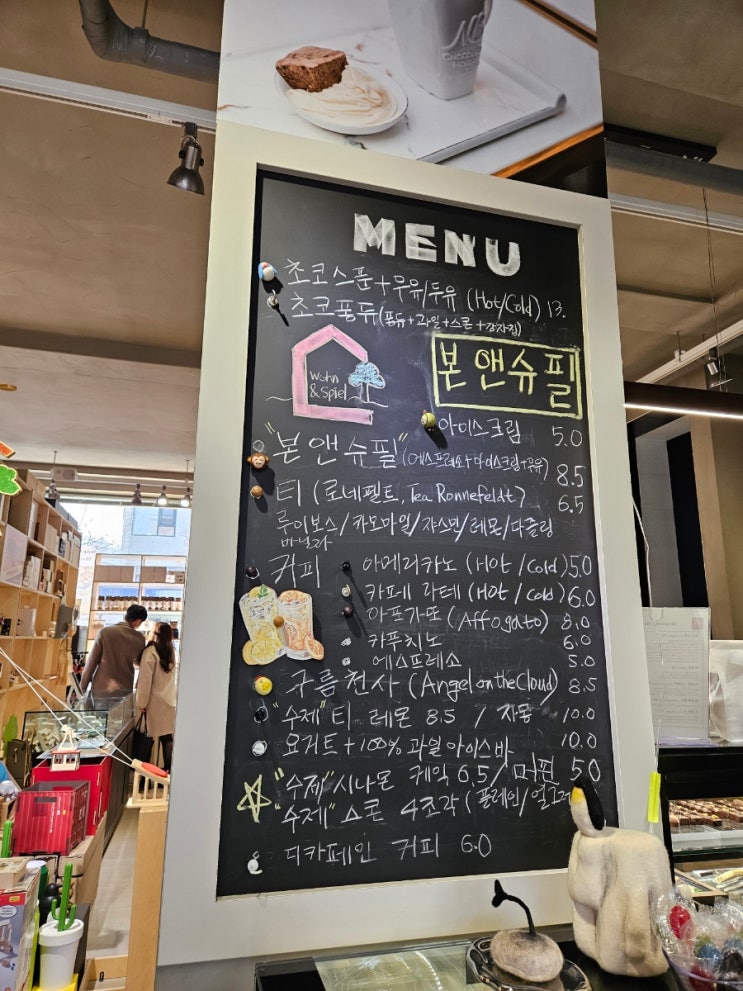 MENU
초코스푼+우유/두유 (Hot/Cold) 13.
초코퐁듀(퐁듀+과일+스콘+감자칩)
Wohn
&Spiel
본앤슈필
아이스크림 5.0
"본앤슈필"(에스프레소+아이스크림+우유) 8.5
티 (로네펠트, Tea Ronnefeldt) 6.5
루이보스/카모마일/쟈스민/레몬/다즐링
바닐라
커피
아메리카노 (Hot/Cold) 5.0
카페 라테 (Hot/Cold) 6.0
아포가또 (Affogato) 8.0
카푸치노 6.0
에스프레소 5.0
구름천사 (Angel on the Cloud) 8.5
"수제"티 레몬 8.5 / 자몽 10.0
요거트+100% 과일아이스바 10.0
"수제"시나몬 케익 6.5/ 머핀 5.0
"수제"스콘 4조각 (플레인/얼그레
디카페인 커피 6.0